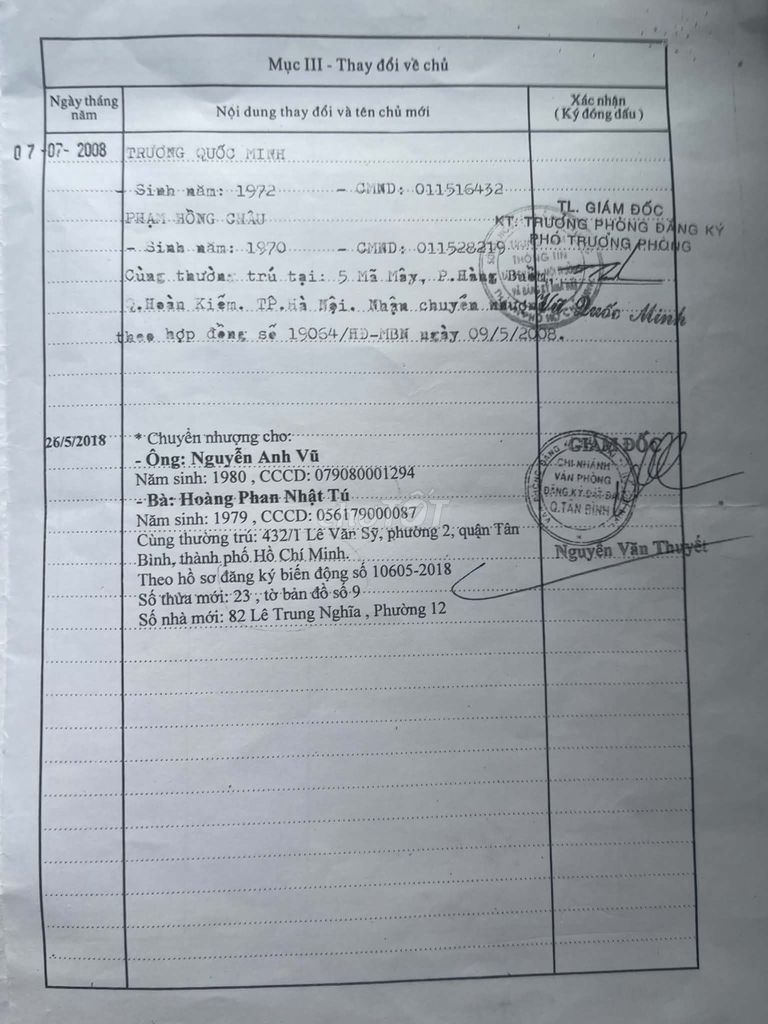 Mục III - Thay đổi về chủ
Ngày tháng năm
Nội dung thay đổi và tên chủ mới
Xác nhận
( Ký đóng dấu )
07-07-2008
TRƯƠNG QUỐC MINH
- Sinh năm: 1972 - CMND: 011516432
PHẠM HỒNG CHÂU
- Sinh năm: 1970 - CMND: 011528219
Cùng thường trú tại: 5 Mã Mây, P.Hàng Buồm
Q.Hoàn Kiếm. TP.Hà Nội. Nhận chuyển nhượng
theo hợp đồng số 19064/HĐ-MBN ngày 09/5/2008.
TL. GIÁM ĐỐC
KT. TRƯƠNG PHÒNG ĐĂNG KÝ
PHÓ TRƯƠNG PHÒNG
THÔNG TIN
Quốc Minh
26/5/2018
* Chuyển nhượng cho:
- Ông: Nguyễn Anh Vũ
Năm sinh: 1980 , CCCD: 079080001294
- Bà: Hoàng Phan Nhật Tú
Năm sinh: 1979 , CCCD: 056179000087
Cùng thường trú: 432/1 Lê Văn Sỹ, phường 2, quận Tân
Bình, thành phố Hồ Chí Minh.
Theo hồ sơ đăng ký biến động số 10605-2018
Số thửa mới: 23 , tờ bản đồ số 9
Số nhà mới: 82 Lê Trung Nghĩa , Phường 12
GIÁM ĐỐC
CHI NHÁNH
VĂN PHÒNG
ĐĂNG KÝ ĐẤT ĐAI
Q.TÂN BÌNH
Nguyễn Văn Thuyết